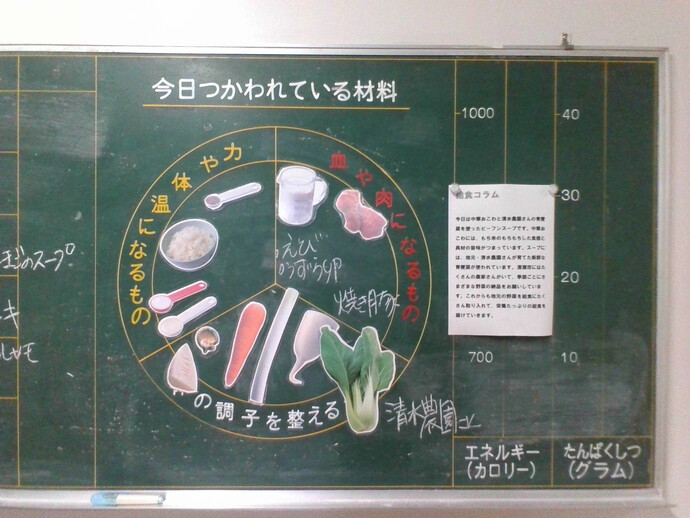 今日つかわれている材料
体や力
温になるもの
血や肉になるもの
の調子を整える
えび
うずら卵
焼き
清水農園
のスープ
キ
1000
700
エネルギー
(カロリー)
40
30
20
10
たんぱくしつ
(グラム)
給食コラム
今日は中華おこわと清水農園さんの青梗
菜を使ったビーフンスープです。中華お
こわには、もち米のもちもちした食感と
具材の旨味がつまっています。スープに
は、地元・清水農園さんが育てた新鮮な
青梗菜が使われています。
くさんの農家さんがいて、季節ごとにさ
まざまな野菜の納品をお願いしていま
す。これからも地元の野菜を給食にたく
さん取り入れて、栄養たっぷりの給食を
届けていきます。